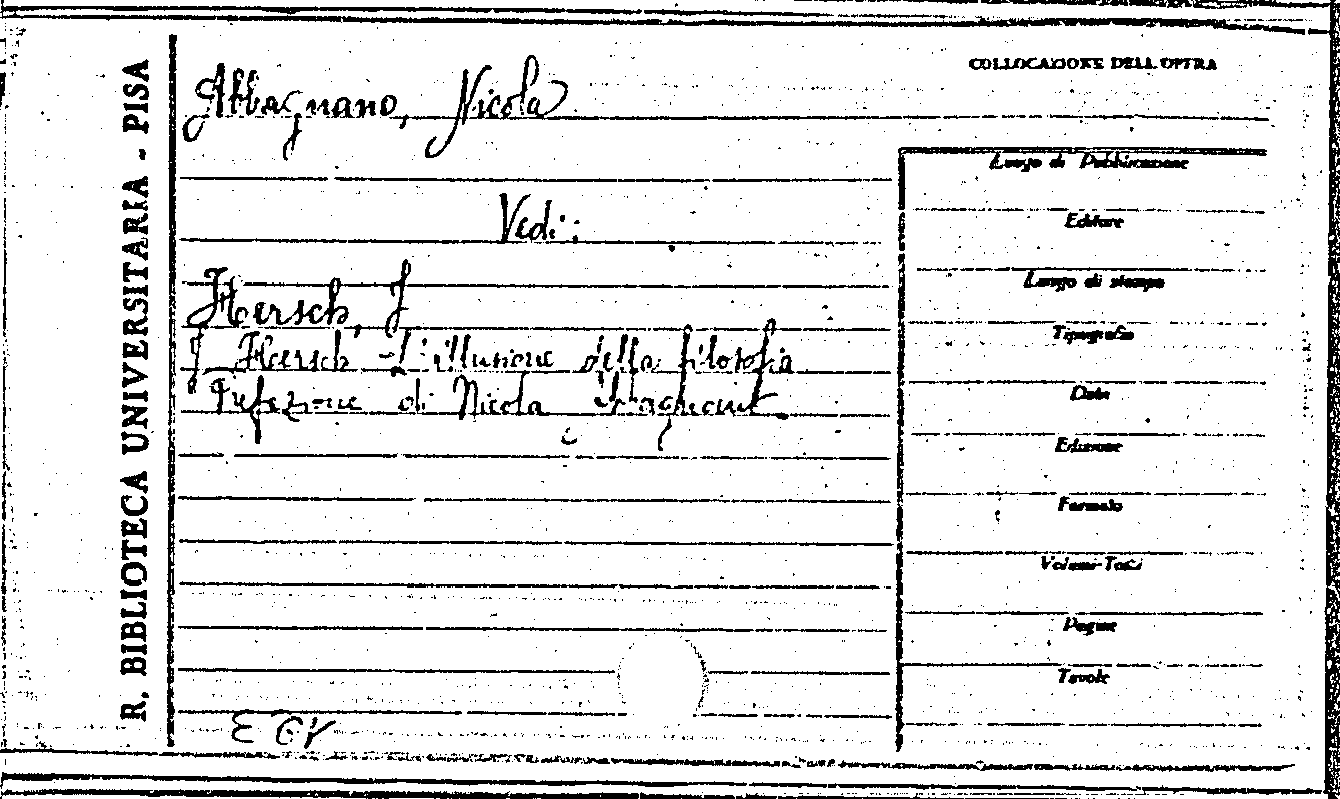 R. BIBLIOTECA UNIVERSITARIA - PISA
Abbagnano, Nicola
COLLOCAZIONE DELL'OPERA
Vedi:
Hersch, J.
J. Hersch - L'illusione della filosofia
Prefazione di Nicola Abbagnano.
Luogo di Pubblicazione
Editore
Luogo di stampa
Tipografia
Data
Edizione
Formato
Volumi-Tomi
Pagine
Tavole